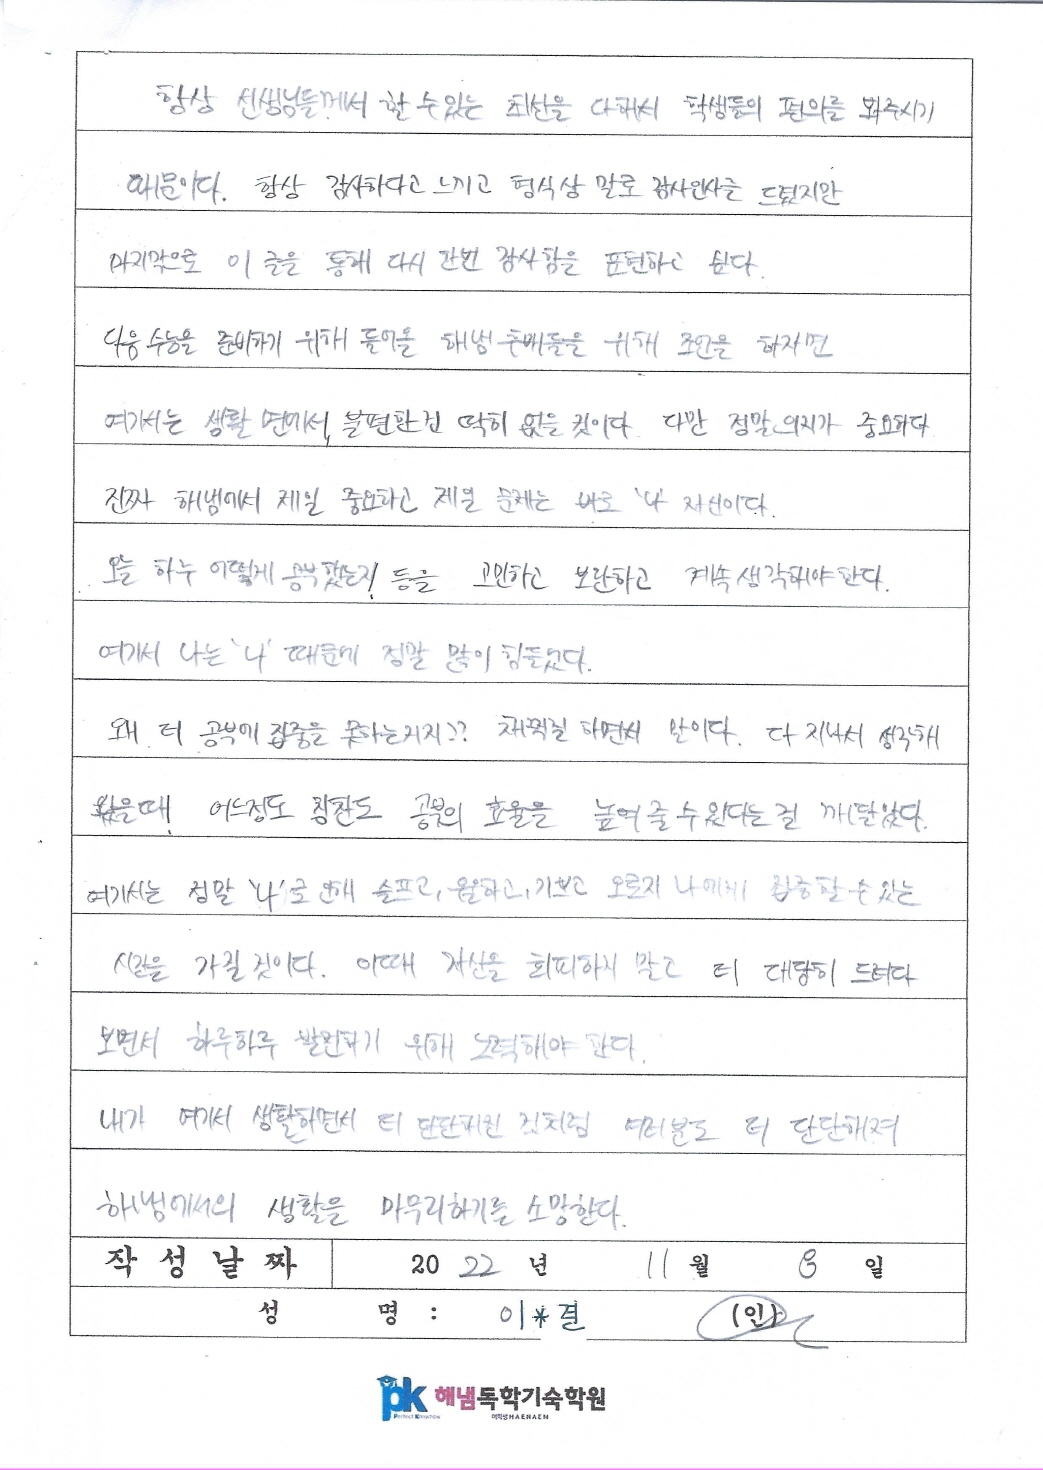 항상 선생님들께서 할 수 있는 최선을 다해서 학생들의 편의를 봐주시기
때문이다. 항상 감사하다고 느끼고 형식상 말로 감사인사를 드렸지만
마지막으로 이 글을 통해 다시 한번 감사함을 표현하고 싶다.
다음 수능을 준비하기 위해 들어올 해냄 후배들을 위해 조언을 하자면
여기서는 생활 면에서, 불편한 건 딱히 없을 것이다. 다만 정말 의지가 중요하다
진짜 해냄에서 제일 중요하고 제일 문제는 바로 '나' 자신이다.
오늘 하루 어떻게 공부했는지! 등을 고민하고 보완하고 계속 생각해야 한다.
여기서 나는 '나' 때문에 정말 많이 힘들었다.
왜 더 공부에 집중을 못하는거지?? 채찍질 하면서 말이다. 다 지나서 생각해
봤을때! 어느정도 칭찬도 공부의 효율을 높여 줄 수 있다는 걸 깨달았다.
여기서는 정말 '나'로 인해 슬프고, 우울하고, 기쁘고 오로지 나에게 집중할 수 있는
시간을 가질 것이다. 이때 자신을 회피하지 말고 더 대담히 드려다
보면서 하루하루 발전하기 위해 노력해야 한다.
내가 여기서 생활하면서 더 단단해진 것처럼 여러분도 더 단단해져
해냄에서의 생활을 마무리하기를 소망한다.
작 성 날 짜 2022 년 11 월 8 일
성 명 : 이*결 (인)
pk 해냄독학기숙학원
PERFECT KREATION 여학생 HAENAEM